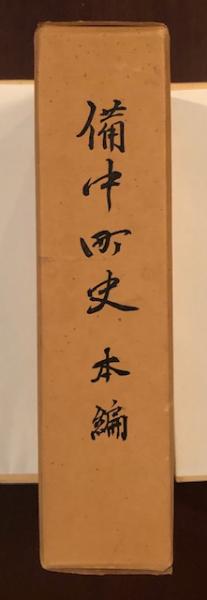 備中町史 本編